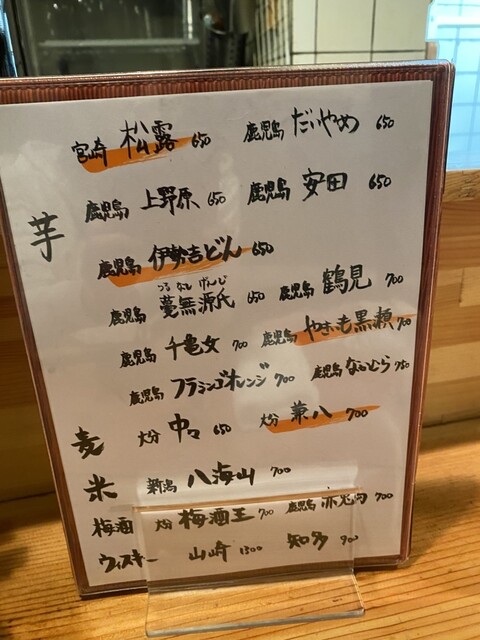 宮崎 松露 650 鹿児島 だいやめ 650
鹿児島 上野原 650 鹿児島 安田 650
芋
鹿児島 伊勢吉どん 650
つるなし げんじ
鹿児島 蔓無源氏 650 鹿児島 鶴見 700
鹿児島 千亀女 700 鹿児島 やきいも黒瀬 700
鹿児島 フラミンゴオレンジ 700 鹿児島 なかむら 750
麦 大分 中々 650 大分 兼八 700
米 新潟 八海山 700
梅酒 大分 梅酒王 700 鹿児島 赤兎馬 700
ウィスキー 山崎 1300 知多 900